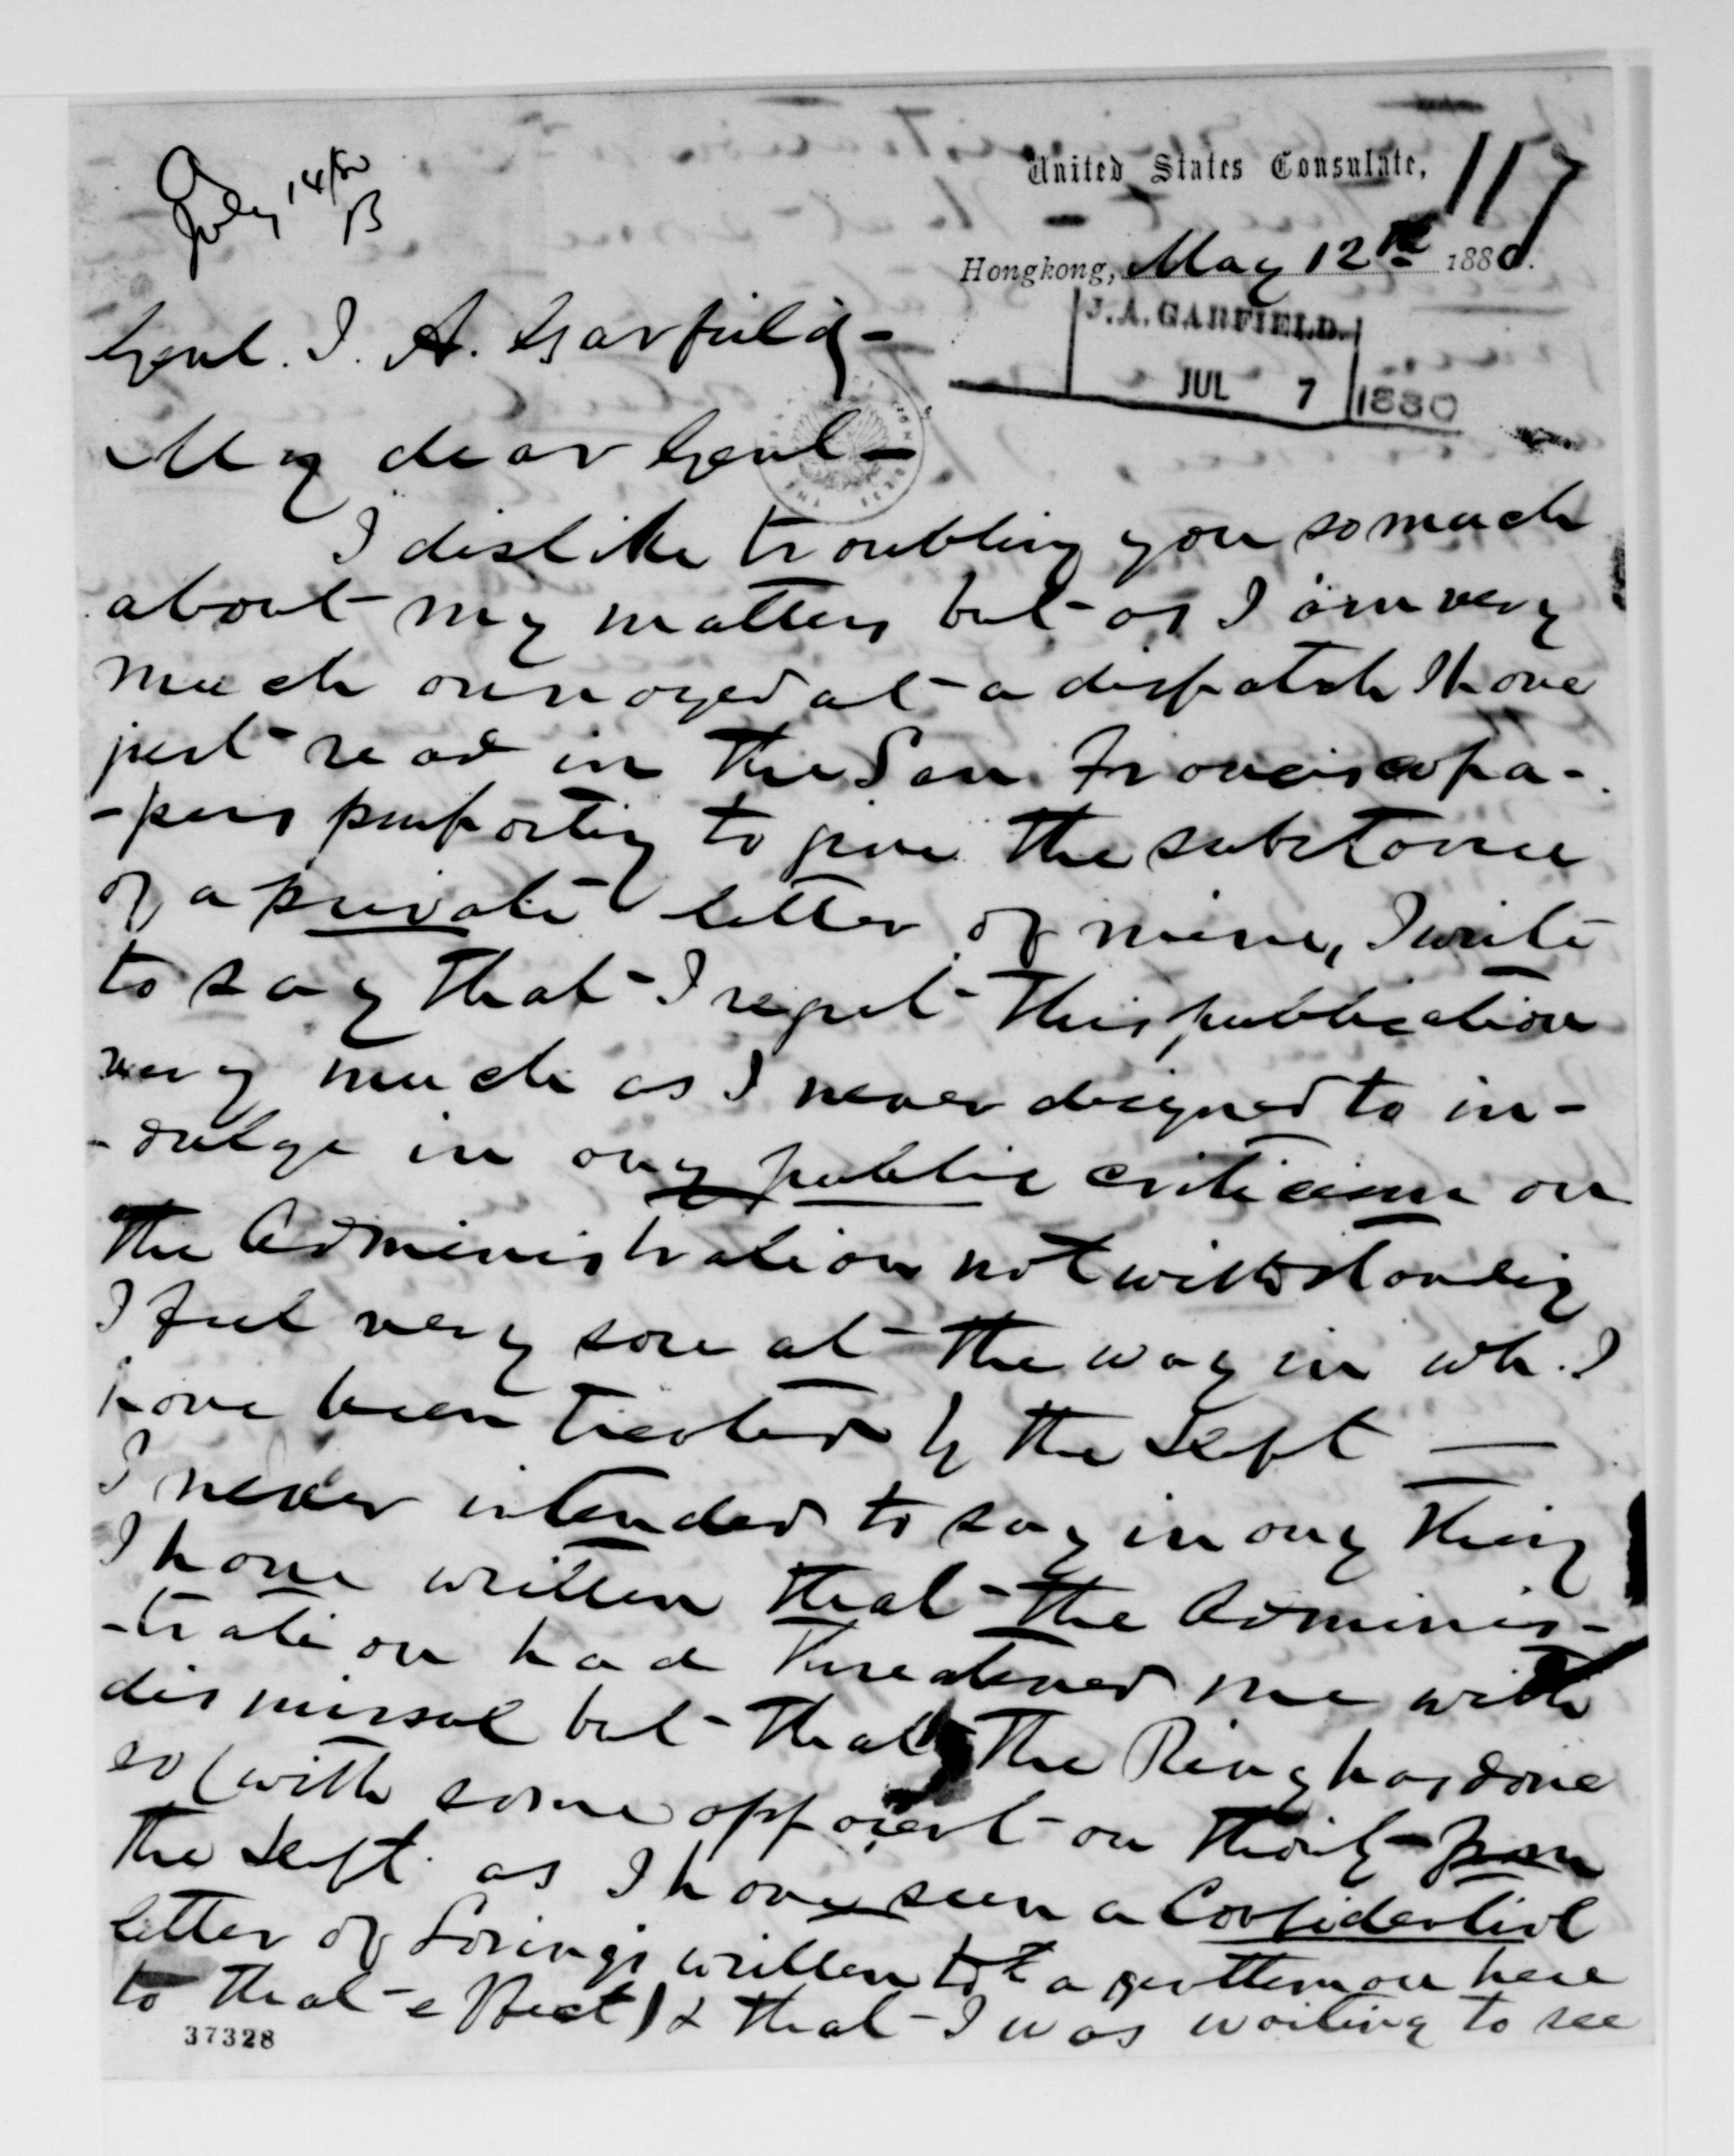 July 14/80
B
United States Consulate,
117
Hongkong, May 12th 1880.
J. A. GARFIELD.
JUL 7 1880
Genl. J. A. Garfield -
My dear Genl -
I dislike troubling you so much
about my matters but as I am very
much annoyed at a dispatch I have
just read in the San Francisco pa-
-pers purporting to give the substance
of a private letter of mine, I write
to say that I regret this publication
very much as I never designed to in-
-dulge in any public criticism on
the Administration notwithstanding
I feel very sore at the way in wh. I
have been treated by the Dept —
I never intended to say in any thing
I have written that the Adminis-
-tration had threatened me with
dismissal but that the Ring has done
so (with some apparent authority from
the Dept. as I have seen a Confidential
letter of Loring's written to a gentleman here
to that effect) & that I was waiting to see
37328